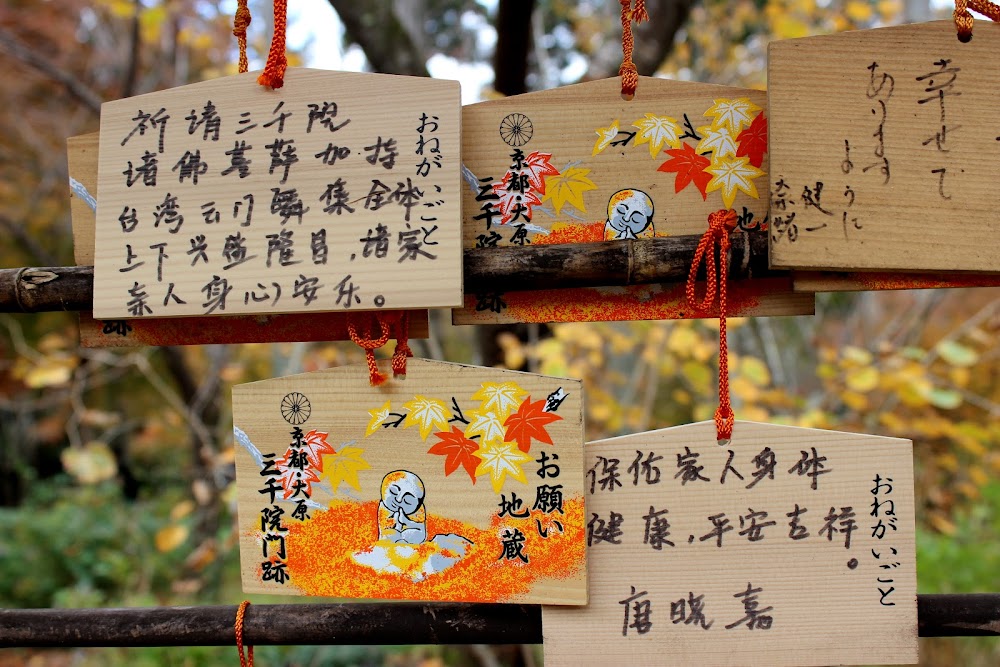 おねがいごと
祈请三千院
诸佛菩萨加持
台湾云门舞集全体
上下兴盛隆昌,诸家
亲人身心安乐。
京都・大原
三千院
幸せで
ありま
ように
健一
奈緒
京都・大原
三千院門跡
お願い
地蔵
おねがいごと
保佑家人身体
健康,平安吉祥。
唐晓嘉